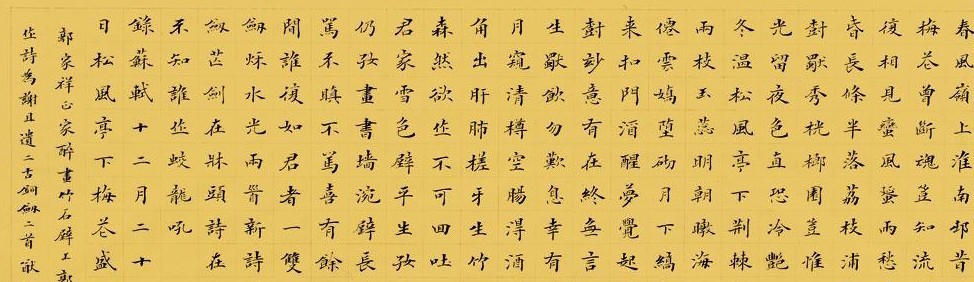 春風嶺上淮南邨昔
梅花曾斷魂豈知流
復相見蠻風蜑雨愁
昏長條半落荔枝浦
樹獨秀桄榔園豈惟
光留夜色直恐冷艷
冬溫松風亭下荊棘
雨枝玉蕊明朝暾海
僊雲嬌墮砌月下縞
来扣門酒醒夢覺起
樹妙意有在終無言
生獨飲勿歎息幸有
月窺清樽空腸得酒
角出肝肺槎牙生竹
森然欲作不可回吐
君家雪色壁平生好
仍好畫書墻涴壁長
罵不瞋不罵喜有餘
間誰復如君者一雙
劔秌水光兩首新詩
劔芒劍在牀頭詩在
不知誰作蛟龍吼
錄蘇軾十二月二十
日松風亭下梅花盛
郭家祥正家醉畫竹石壁上郭
作詩為謝且遺二古銅劔二首